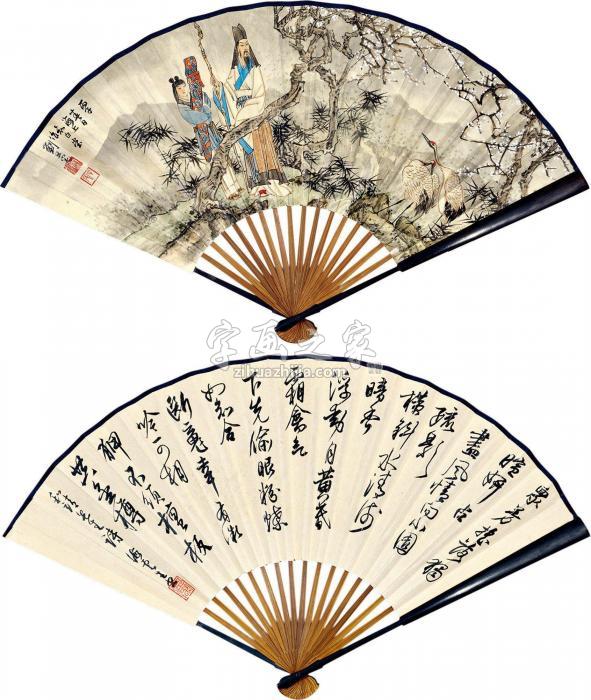 眾芳搖落獨
暄妍占
盡風情向小園
疏影
橫斜水清淺
暗香
浮動月黃昏
霜禽欲
下先偷眼粉蝶
如知合
斷魂幸有微
吟可相
狎不須檀板
共金樽
字画之家
zihuazhijia.com